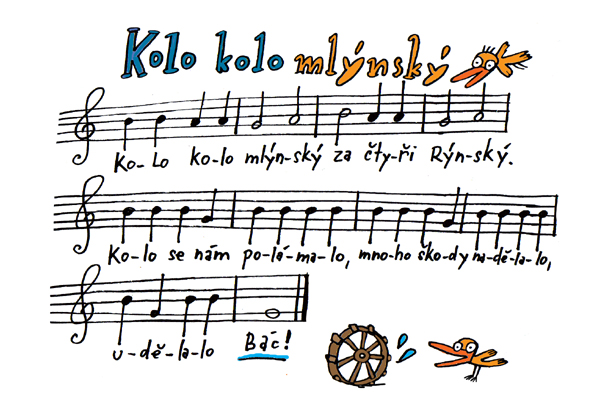 Kolo kolo mlýnský
Ko-lo ko-lo mlýn-ský za čty-ři Rýn-ský.
Ko-lo se nám po-lá-ma-lo, mno-ho ško-dy na-dě-la-lo,
u-dě-la-lo Bác!